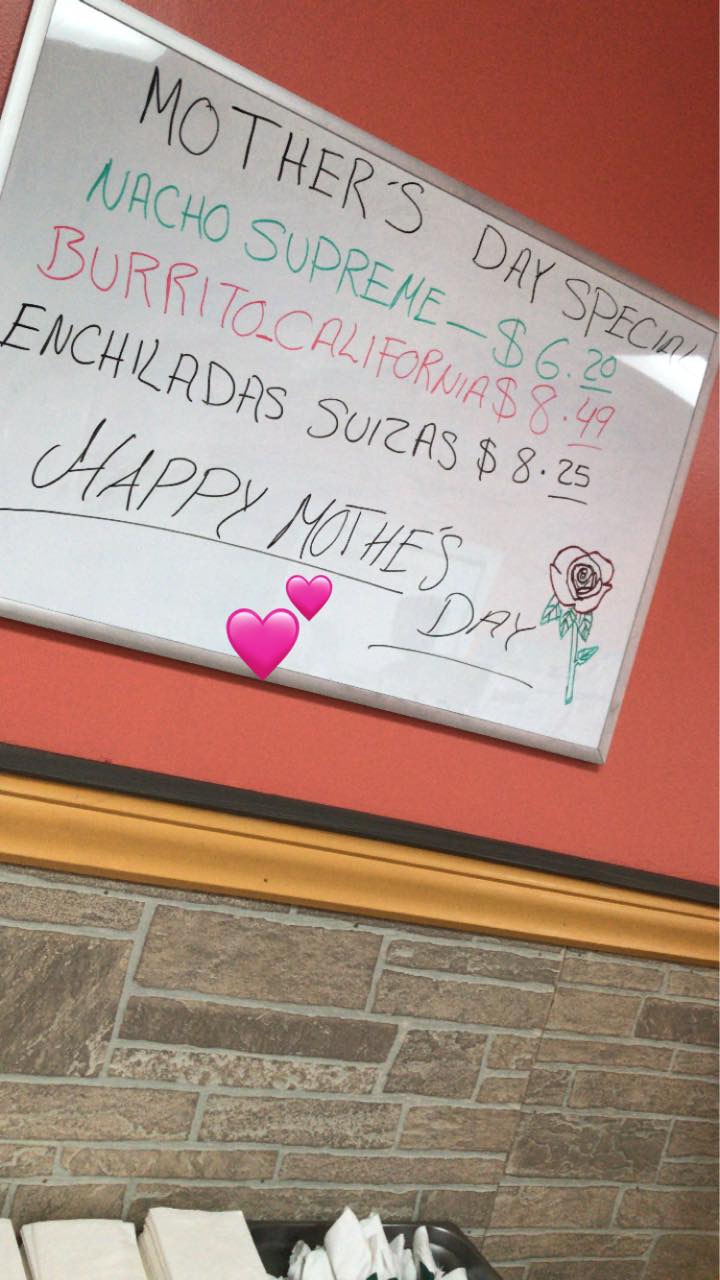 MOTHER'S DAY SPECIAL
NACHO SUPREME — $6.20
BURRITO_CALIFORNIA $8.49
ENCHILADAS SUIZAS $8.25
HAPPY MOTHE'S
DAY